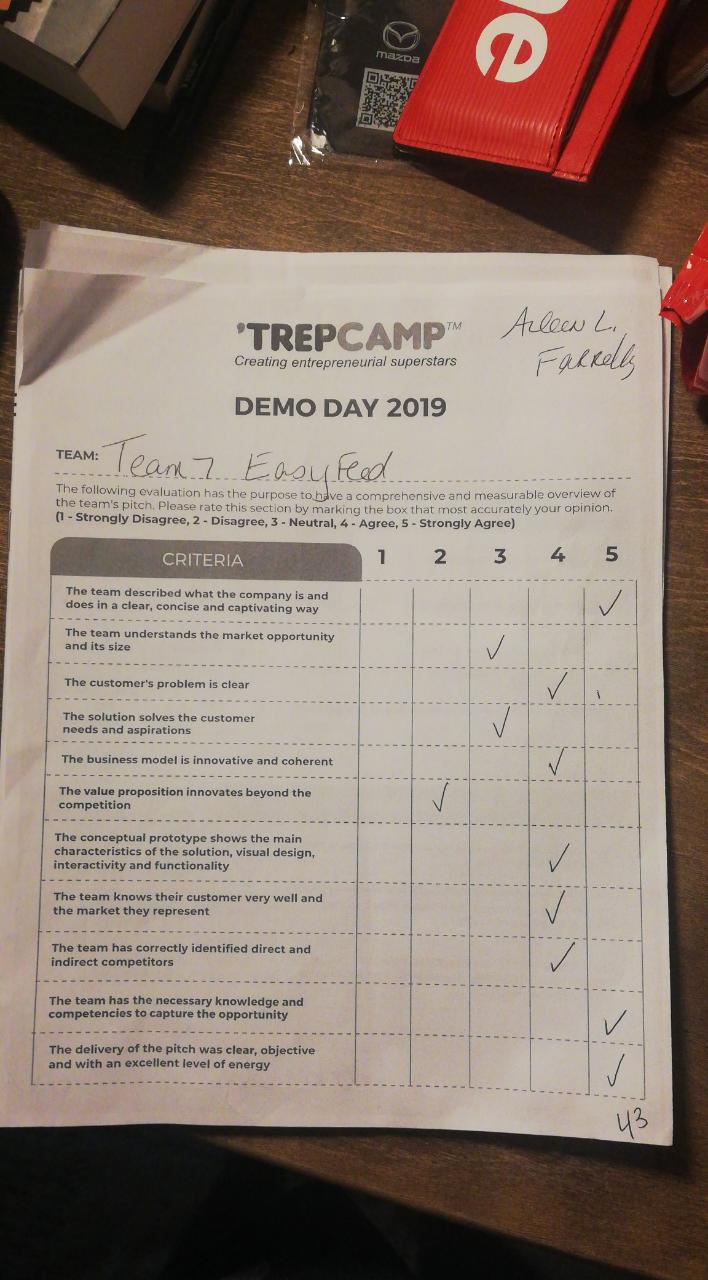 mazda
e
'TREPCAMP™
Creating entrepreneurial superstars
Aileen L.
Farrelly
DEMO DAY 2019
TEAM: Team 7 EasyFeed
The following evaluation has the purpose to have a comprehensive and measurable overview of
the team's pitch. Please rate this section by marking the box that most accurately your opinion.
(1 - Strongly Disagree, 2 - Disagree, 3 - Neutral, 4 - Agree, 5 - Strongly Agree)
CRITERIA 1 2 3 4 5
The team described what the company is and
does in a clear, concise and captivating way ✓
The team understands the market opportunity
and its size ✓
The customer's problem is clear ✓
The solution solves the customer
needs and aspirations ✓
The business model is innovative and coherent ✓
The value proposition innovates beyond the
competition ✓
The conceptual prototype shows the main
characteristics of the solution, visual design,
interactivity and functionality ✓
The team knows their customer very well and
the market they represent ✓
The team has correctly identified direct and
indirect competitors ✓
The team has the necessary knowledge and
competencies to capture the opportunity ✓
The delivery of the pitch was clear, objective
and with an excellent level of energy ✓
43